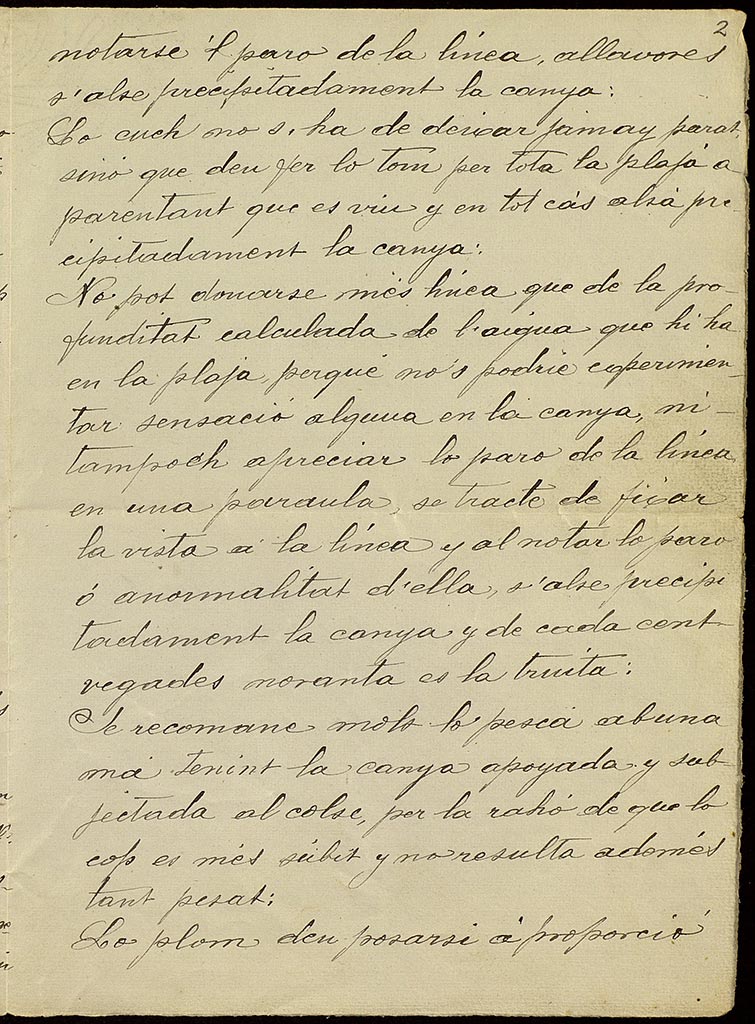 2
notarse 'l paro de la línea, allavores
s'alse precipitadament la canya:
Lo cuch no s'ha de deixar jamay parat,
sinó que deu fer lo tom per tota la plaja a
parentant que es viu y en tot cás alsá pre-
cipitadament la canya:
No pot donarse més línea que de la pro-
funditat calculada de l'aigua que hi ha
en la plaja, perqué no's podrie experimen-
tar sensació alguna en la canya, ni
tampoch apreciar lo paro de la línea,
en una paraula, se tracte de fixar
la vista á la línea y al notar lo paro
ó anormalitat d'ella, s'alse precipi
tadament la canya y de cada cent
vegades noranta es la truita:
Se recomane molt lo pescá ab una
má tenint la canya apoyada y sub-
jectada al colse, per la rahó de que lo
cop es més súbit y no resulta además
tant pesat:
Lo plom deu posarsi á proporció